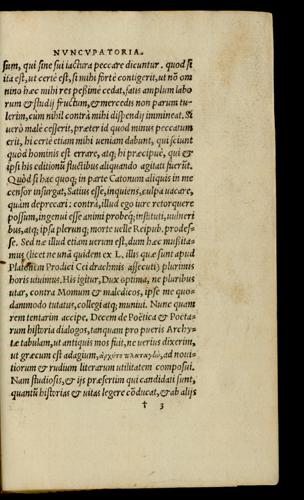 NVNCVPATORIA.
sum, qui sine sui iactura peccare dicuntur. quod si
ita est, ut certè est, si mihi fortè contigerit, ut nō om
nino hæc mihi res peßimè cedat, satis amplum labo
rum & studij fructum, & mercedis non parum tu-
lerim, cum nihil contrà mihi dispendij immineat. Si
uerò malè cesserit, præter id quod minus peccatum
erit, hi certè etiam mihi ueniam dabunt, qui sciunt
quòd hominis est errare, atq; hi præcipuè, qui &
ipsi his editionū fluctibus aliquando agitati fuerūt.
Quòd si hæc quoq; in parte Catonum aliquis in me
censor insurgat, Satius esse, inquiens, culpa uacare,
quàm deprecari: contrà, illud ego iure retorquere
possum, ingenui esse animi probeq; instituti, uulneri
bus, atq; ipsa plerunq; morte uelle Reipub. prodes-
se. Sed ne illud etiam uerum est, dum hæc mußita-
mus (licet ne unā quidem ex L. illis quæ sunt apud
Platonem Prodici Cei drachmis assecuti) plurimis
horis uiuimus. His igitur, Dux optima, ne pluribus
utar, contra Momum & maledicos, ipse me quo-
dammodo tutatus, collegi atq; muniui. Nunc quam
rem tentarim accipe. Decem de Poëtica & Poëta-
rum historia dialogos, tanquam pro pueris Archy-
tæ tabulam, ut antiquis mos fuit, ne uerius dixerim,
ut græcum est adagium, ἀρχύτα πλαταγὼ, ad noui-
tiorum & rudium literarum utilitatem composui.
Nam studiosis, & ijs præsertim qui candidati sunt,
quantū historias & uitas legere cōducat, & ab alijs
† 3